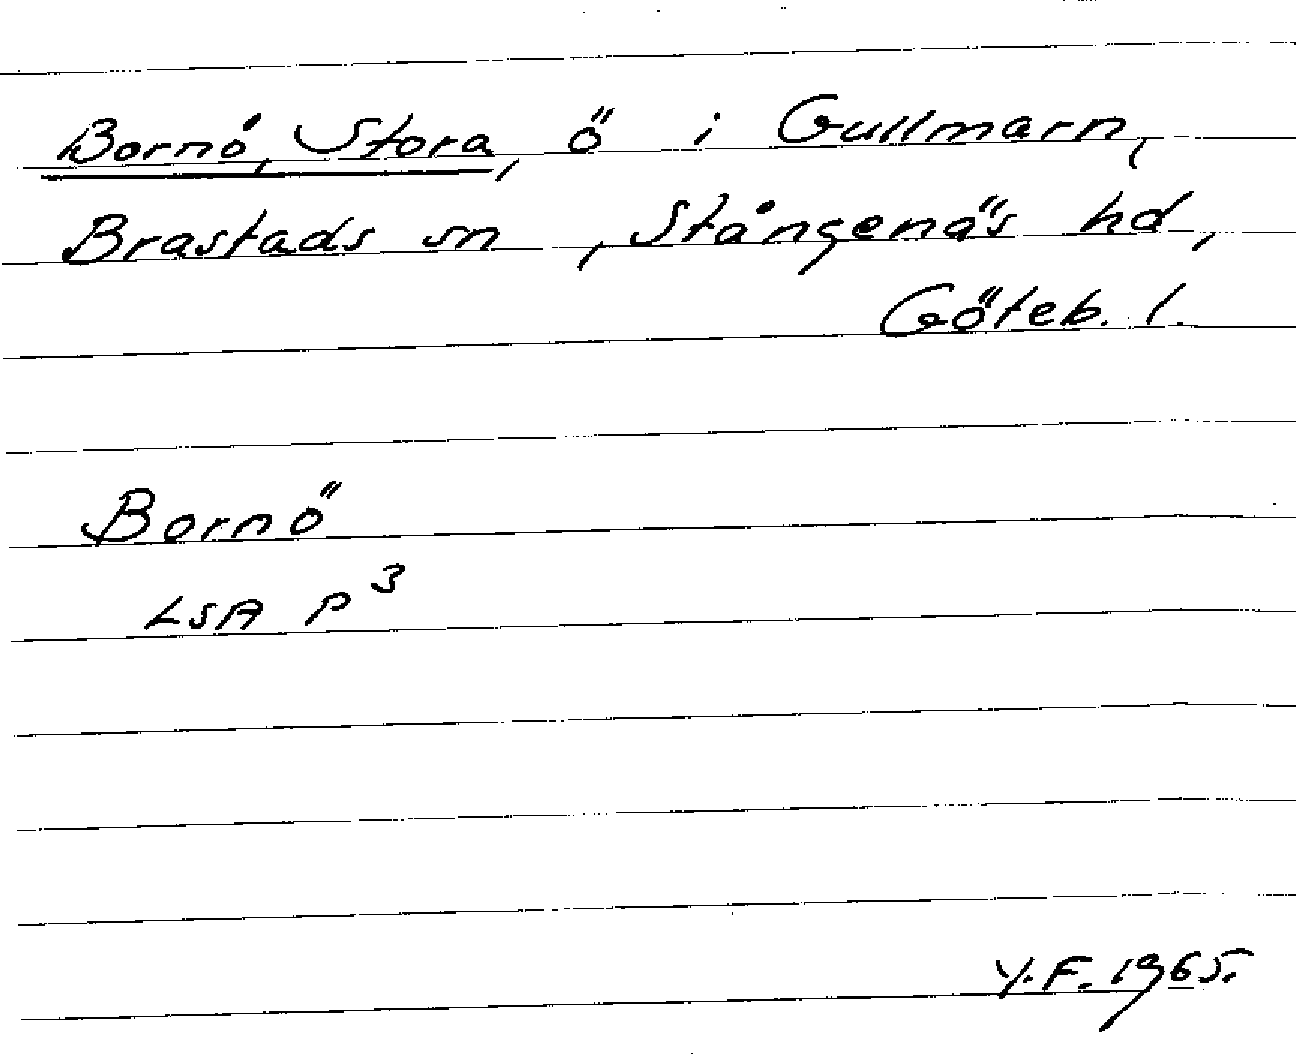 Bornö, Stora, ö i Gullmarn,
Brastads sn, Stångenäs hd,
Göteb. l.
Bornö
LSA P³
Y.F. 1965.